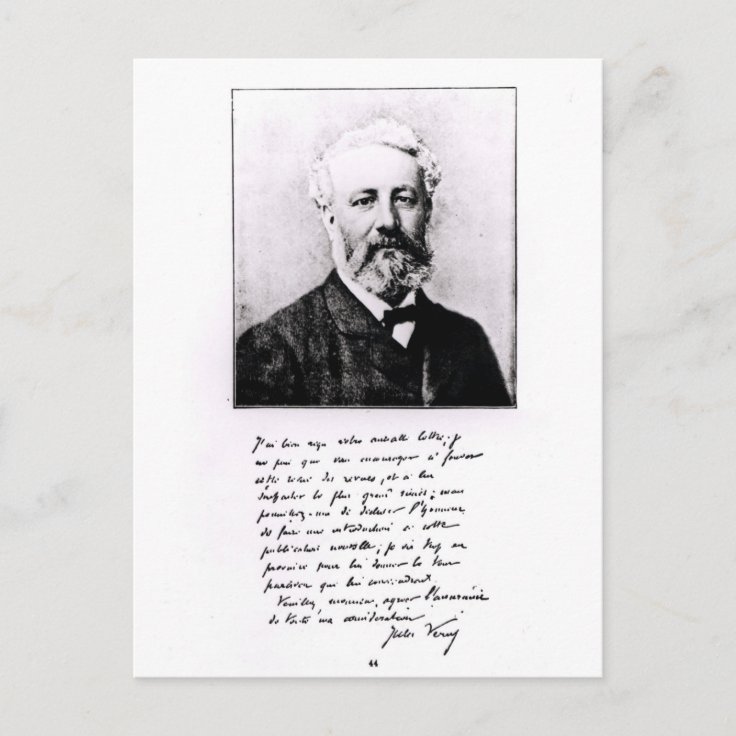 J'ai bien reçu votre aimable lettre; je
ne puis que vous encourager à fonder
cette revue des revues, et à lui
souhaiter le plus grand succès; mais
permettez-moi de décliner l'honneur
de faire une introduction à cette
publication nouvelle; je suis trop en
province pour lui donner le tour
parisien qui lui conviendrait.
Veuillez, monsieur, agréer l'assurance
de toute ma considération.
Jules Verne
44